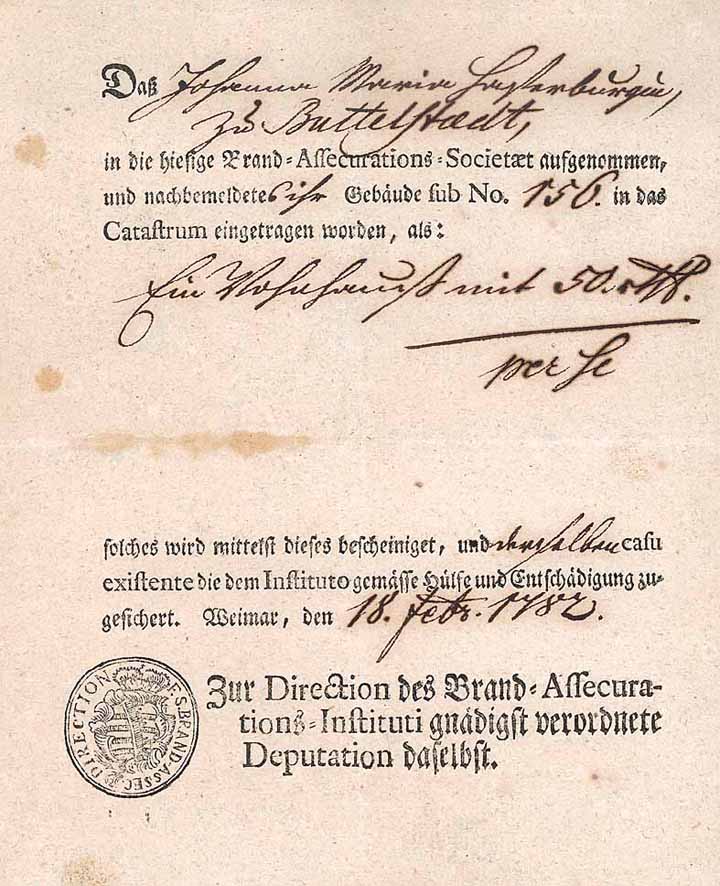 Daß Johanna Maria Hasterburgin,
zu Buttelstædt,
in die hiesige Brand-Assecurations-Societæt aufgenommen,
und nachbemeldetes ihr Gebäude sub No. 156. in das
Catastrum eingetragen worden, als:
Ein Wohnhauß mit 50. rthl.
per se
solches wird mittelst dieses bescheiniget, und derselben casu
existente die dem Instituto gemässe Hülfe und Entschädigung zu-
gesichert. Weimar, den 18. Febr. 1782.
Zur Direction des Brand-Assecura-
tions-Instituti gnädigst verordnete
Deputation daselbst.
F.S. BRAND-ASSEC. DIRECTION